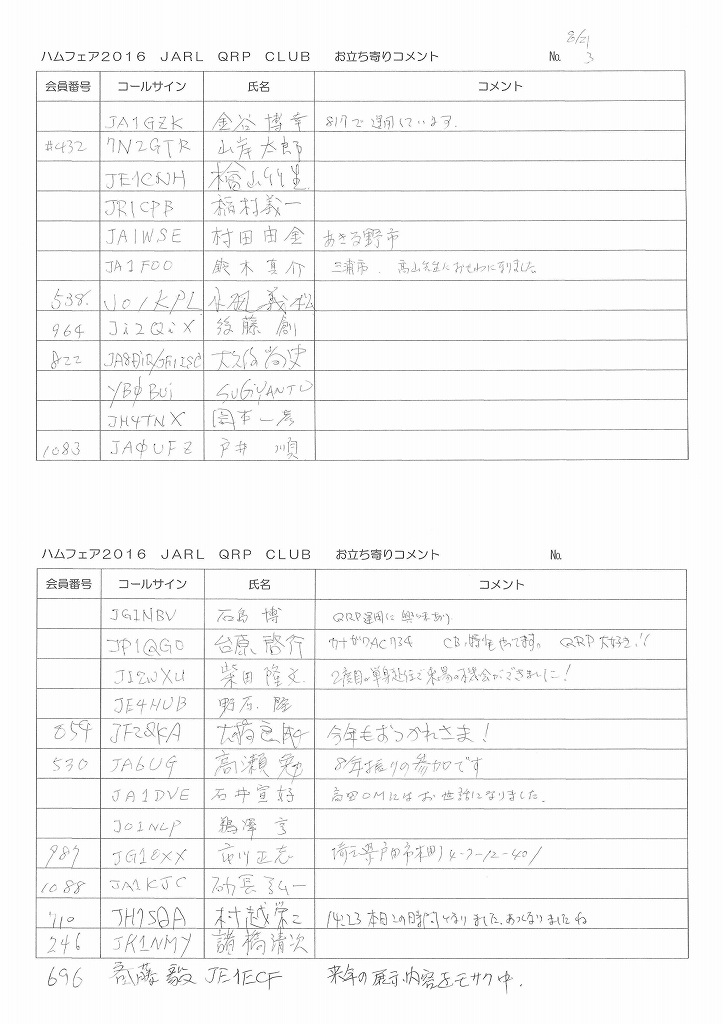 8/21
ハムフェア2016 JARL QRP CLUB お立ち寄りコメント No. 3
会員番号 コールサイン 氏名 コメント
JA1GZK 金谷 博幸 817で運用しています.
#432 7N2GTR 山岸 太郎
JE1CNH 檜山竹生
JR1CPB 稲村義一
JA1WSE 村田由金 あきる野市
JA1FOO 鈴木真介 三浦市. 高山先生におせわになりました
538. JO1KPL 義松
964 Ji2QiX 後藤 創
822 大久保尚史
YBØBUi SUGiYANTO
JH4TNX 岡本一彦
1083 JAØUFZ 戸井 順
ハムフェア2016 JARL QRP CLUB お立ち寄りコメント No.
会員番号 コールサイン 氏名 コメント
JG1NBV 石島 博 QRP運用に興味あり
JP1QGO 台原 啓介 カナガワAC734 CB, 特小もやってます。 QRP大好き!!
柴田隆文 2度目の単身赴任で来場の機会ができました!
JE4HUB 野石 隆
859 今年もおつかれさま!
530 JA6UG 高瀬 8年振りの参加です
JA1DVE 石井宣好 高田OMにはお世話になりました.
JO1NLP 鵜澤 亨
987 JG1EXX 市川正志 埼玉県戸田市本町4-7-12-401
1088 JA1KJC
710 村越栄二 14:23 本日この時間となりました. あつくなりましたね
246 JR1NMY 諸橋清次
696 斉藤毅 JE1ECF 来年の展示内容をモサク中.